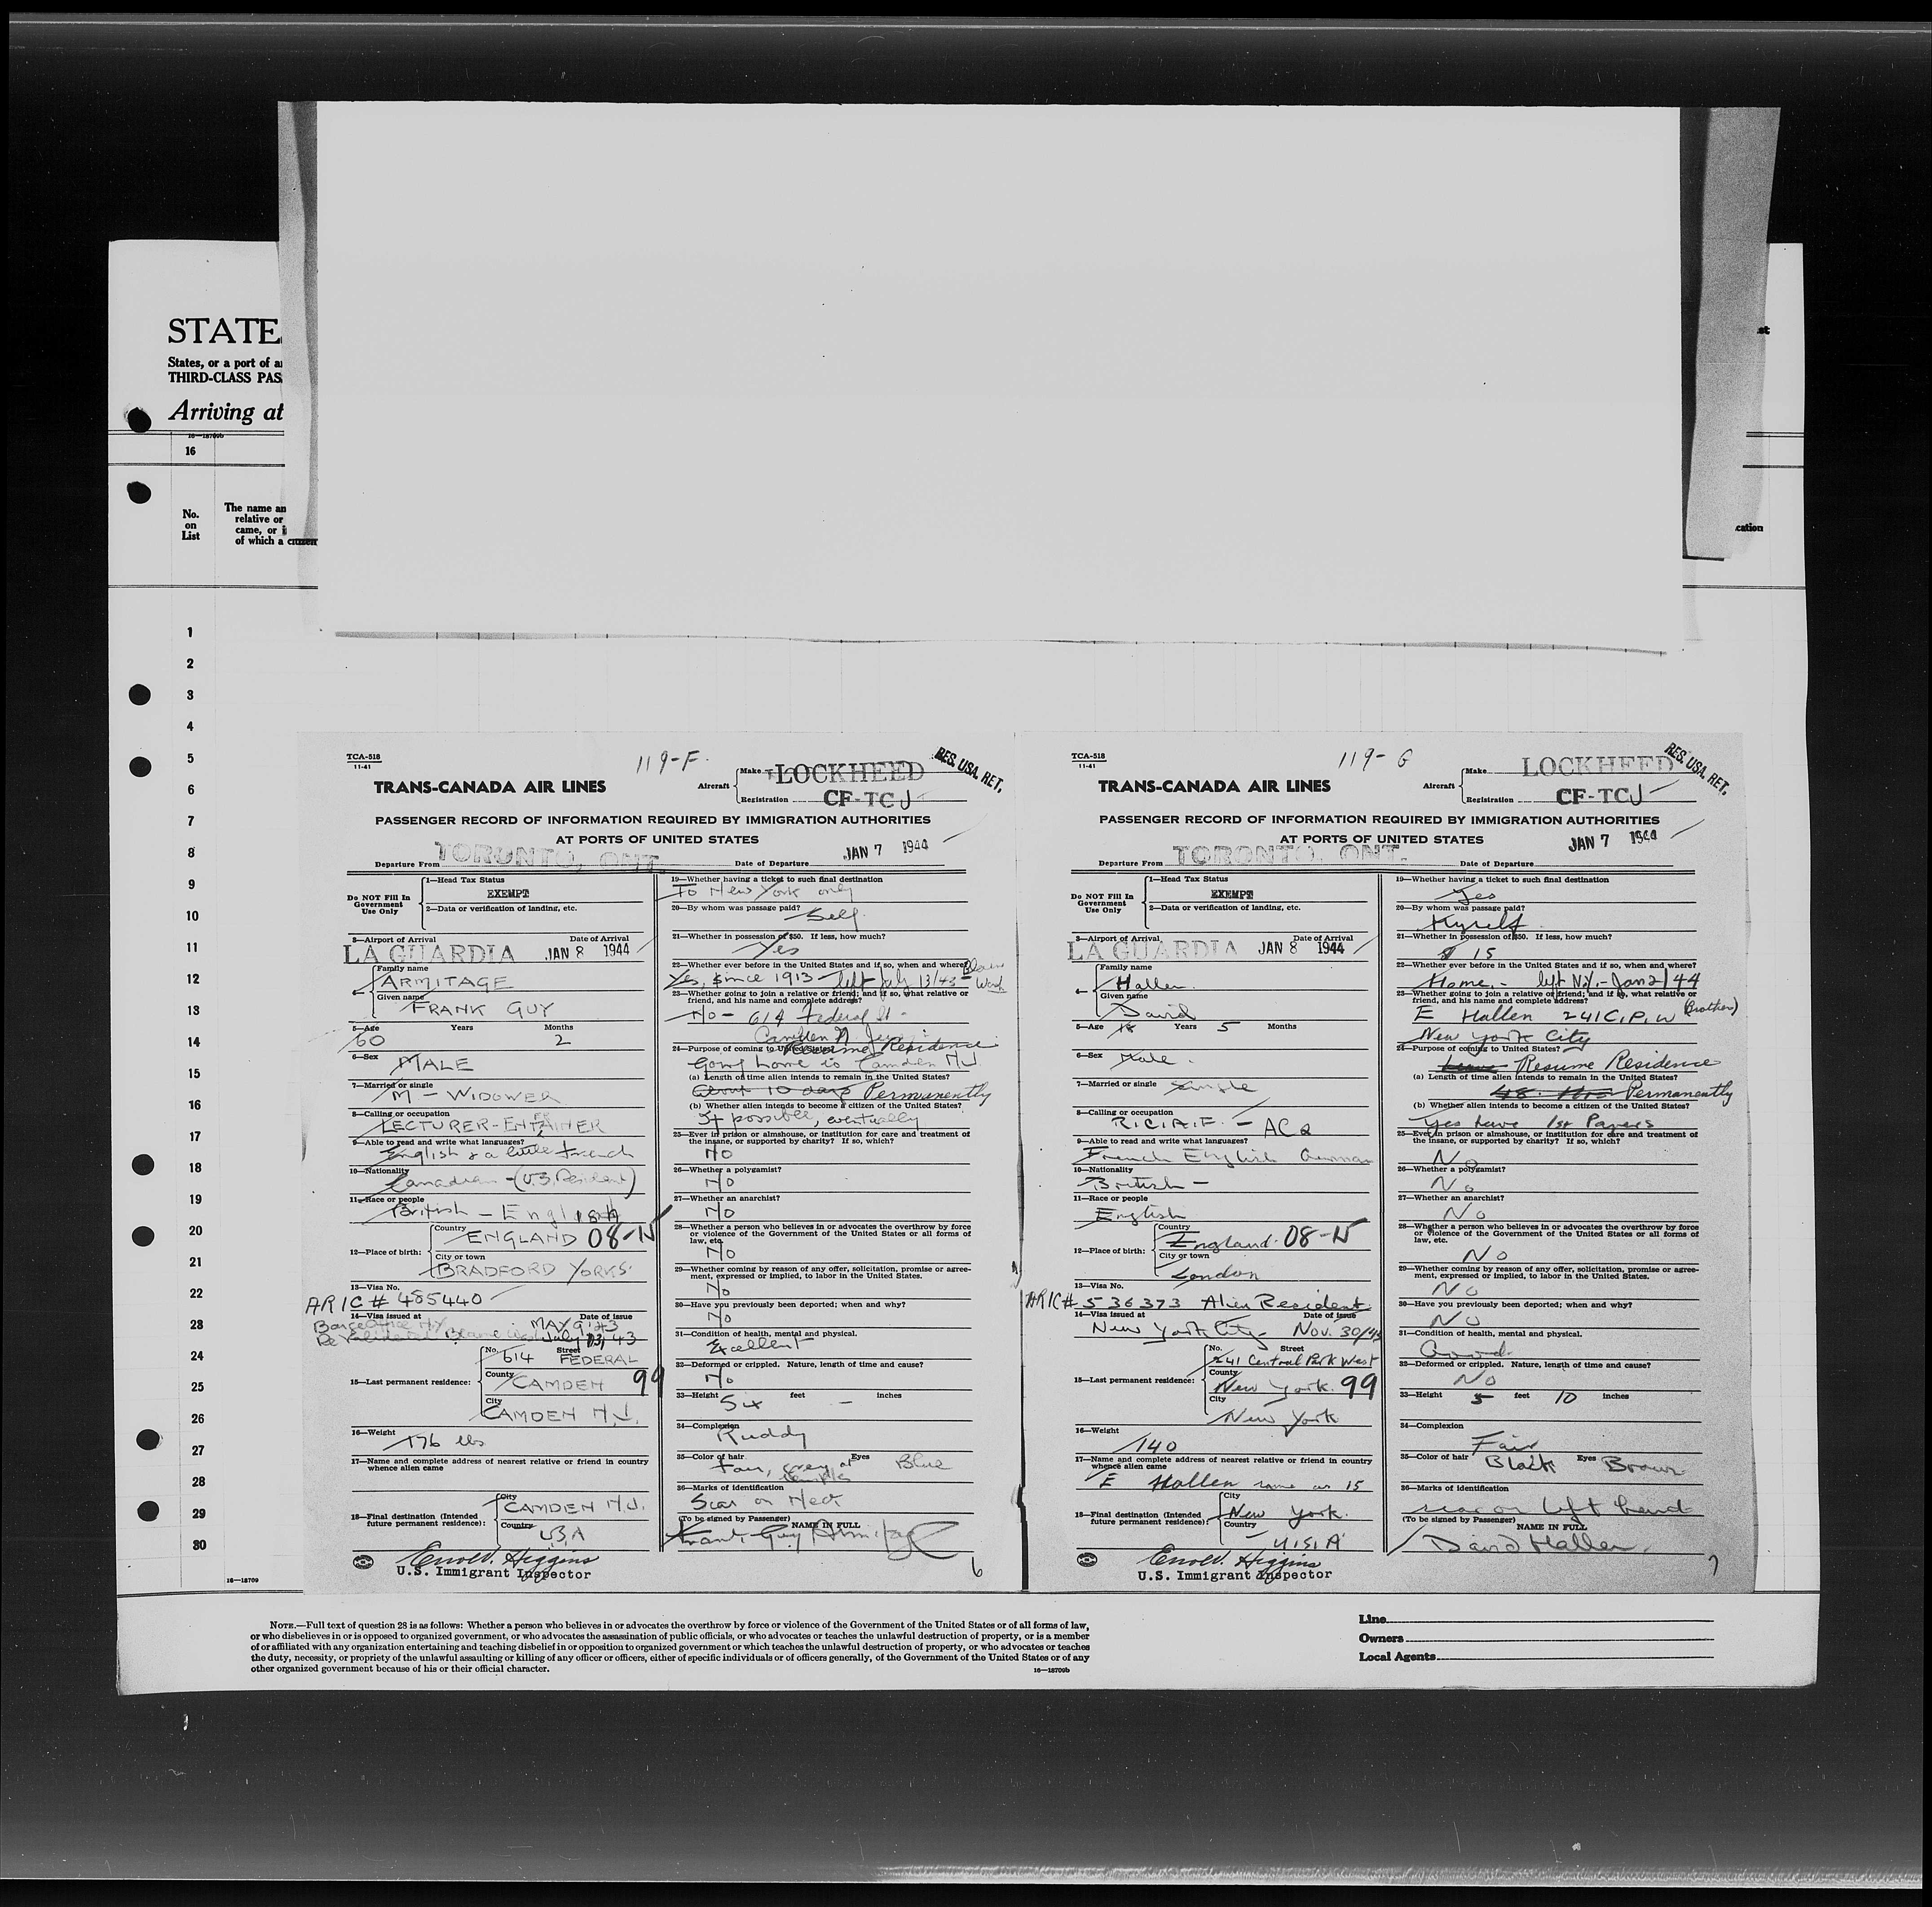 STATE
States, or a port of a
THIRD-CLASS PAS
Arriving at
16—18709b
16
No.
on
List
The name an
relative or
came, or i
of which a citizen
cation
1
2
3
4
5
6
7
8
9
10
11
12
13
14
15
16
17
18
19
20
21
22
23
24
25
26
27
28
29
30
16—18709
TCA-518
11-41
119-F.
RES. USA. RET.
TRANS-CANADA AIR LINES
Aircraft
Make LOCKHEED
Registration CF-TCJ
PASSENGER RECORD OF INFORMATION REQUIRED BY IMMIGRATION AUTHORITIES
AT PORTS OF UNITED STATES
Departure From TORONTO, ONT.
Date of Departure JAN 7 1944
Do NOT Fill In
Government
Use Only
1—Head Tax Status
EXEMPT
2—Data or verification of landing, etc.
3—Airport of Arrival Date of Arrival
LA GUARDIA JAN 8 1944
4— Family name
ARMITAGE
Given name
FRANK GUY
5—Age Years Months
60 2
6—Sex
MALE
7—Married or single
M - WIDOWER
8—Calling or occupation
LECTURER-ENTAINER
9—Able to read and write what languages?
English & a little French
10—Nationality
Canadian - (U.S. Resident)
11—Race or people
British - English
12—Place of birth:
Country
ENGLAND 08-N
City or town
BRADFORD YORKS.
13—Visa No.
ARIC # 485440
14—Visa issued at Date of issue
Barge Office NY MAY 9 '43
Revalidated Blaine Wash July 13, 43
15—Last permanent residence:
No. Street
614 FEDERAL
County
CAMDEN 99
City
CAMDEN N.J.
16—Weight
176 lbs
17—Name and complete address of nearest relative or friend in country
whence alien came
18—Final destination (Intended
future permanent residence):
City
CAMDEN N.J.
Country
U.S.A
Errol V. Higgins
U.S. Immigrant Inspector
19—Whether having a ticket to such final destination
To New York only
20—By whom was passage paid?
Self.
21—Whether in possession of $50. If less, how much?
Yes
22—Whether ever before in the United States and if so, when and where?
Yes, since 1913 - left July 13/43 - Blaine Wash
23—Whether going to join a relative or friend; and if so, what relative or
friend, and his name and complete address?
No - 614 Federal St -
Camden N. Jersey
24—Purpose of coming to United States?
Resume Residence
Going home to Camden N.J.
(a) Length of time alien intends to remain in the United States?
About 10 days Permanently
(b) Whether alien intends to become a citizen of the United States?
If possible, eventually
25—Ever in prison or almshouse, or institution for care and treatment of
the insane, or supported by charity? If so, which?
No
26—Whether a polygamist?
No
27—Whether an anarchist?
No
28—Whether a person who believes in or advocates the overthrow by force
or violence of the Government of the United States or all forms of
law, etc.
No
29—Whether coming by reason of any offer, solicitation, promise or agree-
ment, expressed or implied, to labor in the United States.
No
30—Have you previously been deported; when and why?
No
31—Condition of health, mental and physical.
Excellent
32—Deformed or crippled. Nature, length of time and cause?
No
33—Height feet inches
Six -
34—Complexion
Ruddy
35—Color of hair Eyes
Fair, grey at temples Blue
36—Marks of identification
Scar on Neck
(To be signed by Passenger)
NAME IN FULL
Frank Guy Armitage
6
TCA-518
11-41
119- G
RES. USA. RET.
TRANS-CANADA AIR LINES
Aircraft
Make LOCKHEED
Registration CF-TCJ
PASSENGER RECORD OF INFORMATION REQUIRED BY IMMIGRATION AUTHORITIES
AT PORTS OF UNITED STATES
Departure From TORONTO, ONT.
Date of Departure JAN 7 1944
Do NOT Fill In
Government
Use Only
1—Head Tax Status
EXEMPT
2—Data or verification of landing, etc.
3—Airport of Arrival Date of Arrival
LA GUARDIA JAN 8 1944
4— Family name
Hallen
Given name
David
5—Age 18 Years 5 Months
6—Sex Male.
7—Married or single Single
8—Calling or occupation
R.C.A.F. - AC2
9—Able to read and write what languages?
French English German
10—Nationality
British -
11—Race or people
English
12—Place of birth:
Country
England. 08-N
City or town
London
13—Visa No.
ARIC# 536373 Alien Resident
14—Visa issued at Date of issue
New York City - Nov. 30/43
15—Last permanent residence:
No. Street
241 Central Park West
County
New York. 99
City
New York
16—Weight
140
17—Name and complete address of nearest relative or friend in country
whence alien came
E Hallen same as 15
18—Final destination (Intended
future permanent residence):
City
New York.
Country
U.S.A
Errol V. Higgins
U.S. Immigrant Inspector
19—Whether having a ticket to such final destination
Yes
20—By whom was passage paid?
Myself
21—Whether in possession of $50. If less, how much?
$ 15
22—Whether ever before in the United States and if so, when and where?
Home. - left N.Y. - Jan 2/44
23—Whether going to join a relative or friend; and if so, what relative or
friend, and his name and complete address?
E Hallen 241 C.P.W (Brother)
New York City
24—Purpose of coming to United States?
Leave Resume Residence
(a) Length of time alien intends to remain in the United States?
48 Hrs Permanently
(b) Whether alien intends to become a citizen of the United States?
Yes have 1st Papers
25—Ever in prison or almshouse, or institution for care and treatment of
the insane, or supported by charity? If so, which?
No
26—Whether a polygamist?
No
27—Whether an anarchist?
No
28—Whether a person who believes in or advocates the overthrow by force
or violence of the Government of the United States or all forms of
law, etc.
No
29—Whether coming by reason of any offer, solicitation, promise or agree-
ment, expressed or implied, to labor in the United States.
No
30—Have you previously been deported; when and why?
No
31—Condition of health, mental and physical.
Good
32—Deformed or crippled. Nature, length of time and cause?
No
33—Height 5 feet 10 inches
34—Complexion
Fair
35—Color of hair Black Eyes Brown
36—Marks of identification
scar on left hand
(To be signed by Passenger)
NAME IN FULL
David Hallen.
7
NOTE.—Full text of question 28 is as follows: Whether a person who believes in or advocates the overthrow by force or violence of the Government of the United States or of all forms of law,
or who disbelieves in or is opposed to organized government, or who advocates the assassination of public officials, or who advocates or teaches the unlawful destruction of property, or is a member
of or affiliated with any organization entertaining and teaching disbelief in or opposition to organized government or which teaches the unlawful destruction of property, or who advocates or teaches
the duty, necessity, or propriety of the unlawful assaulting or killing of any officer or officers, either of specific individuals or of officers generally, of the Government of the United States or of any
other organized government because of his or their official character.
16—18709b
Line
Owners
Local Agents